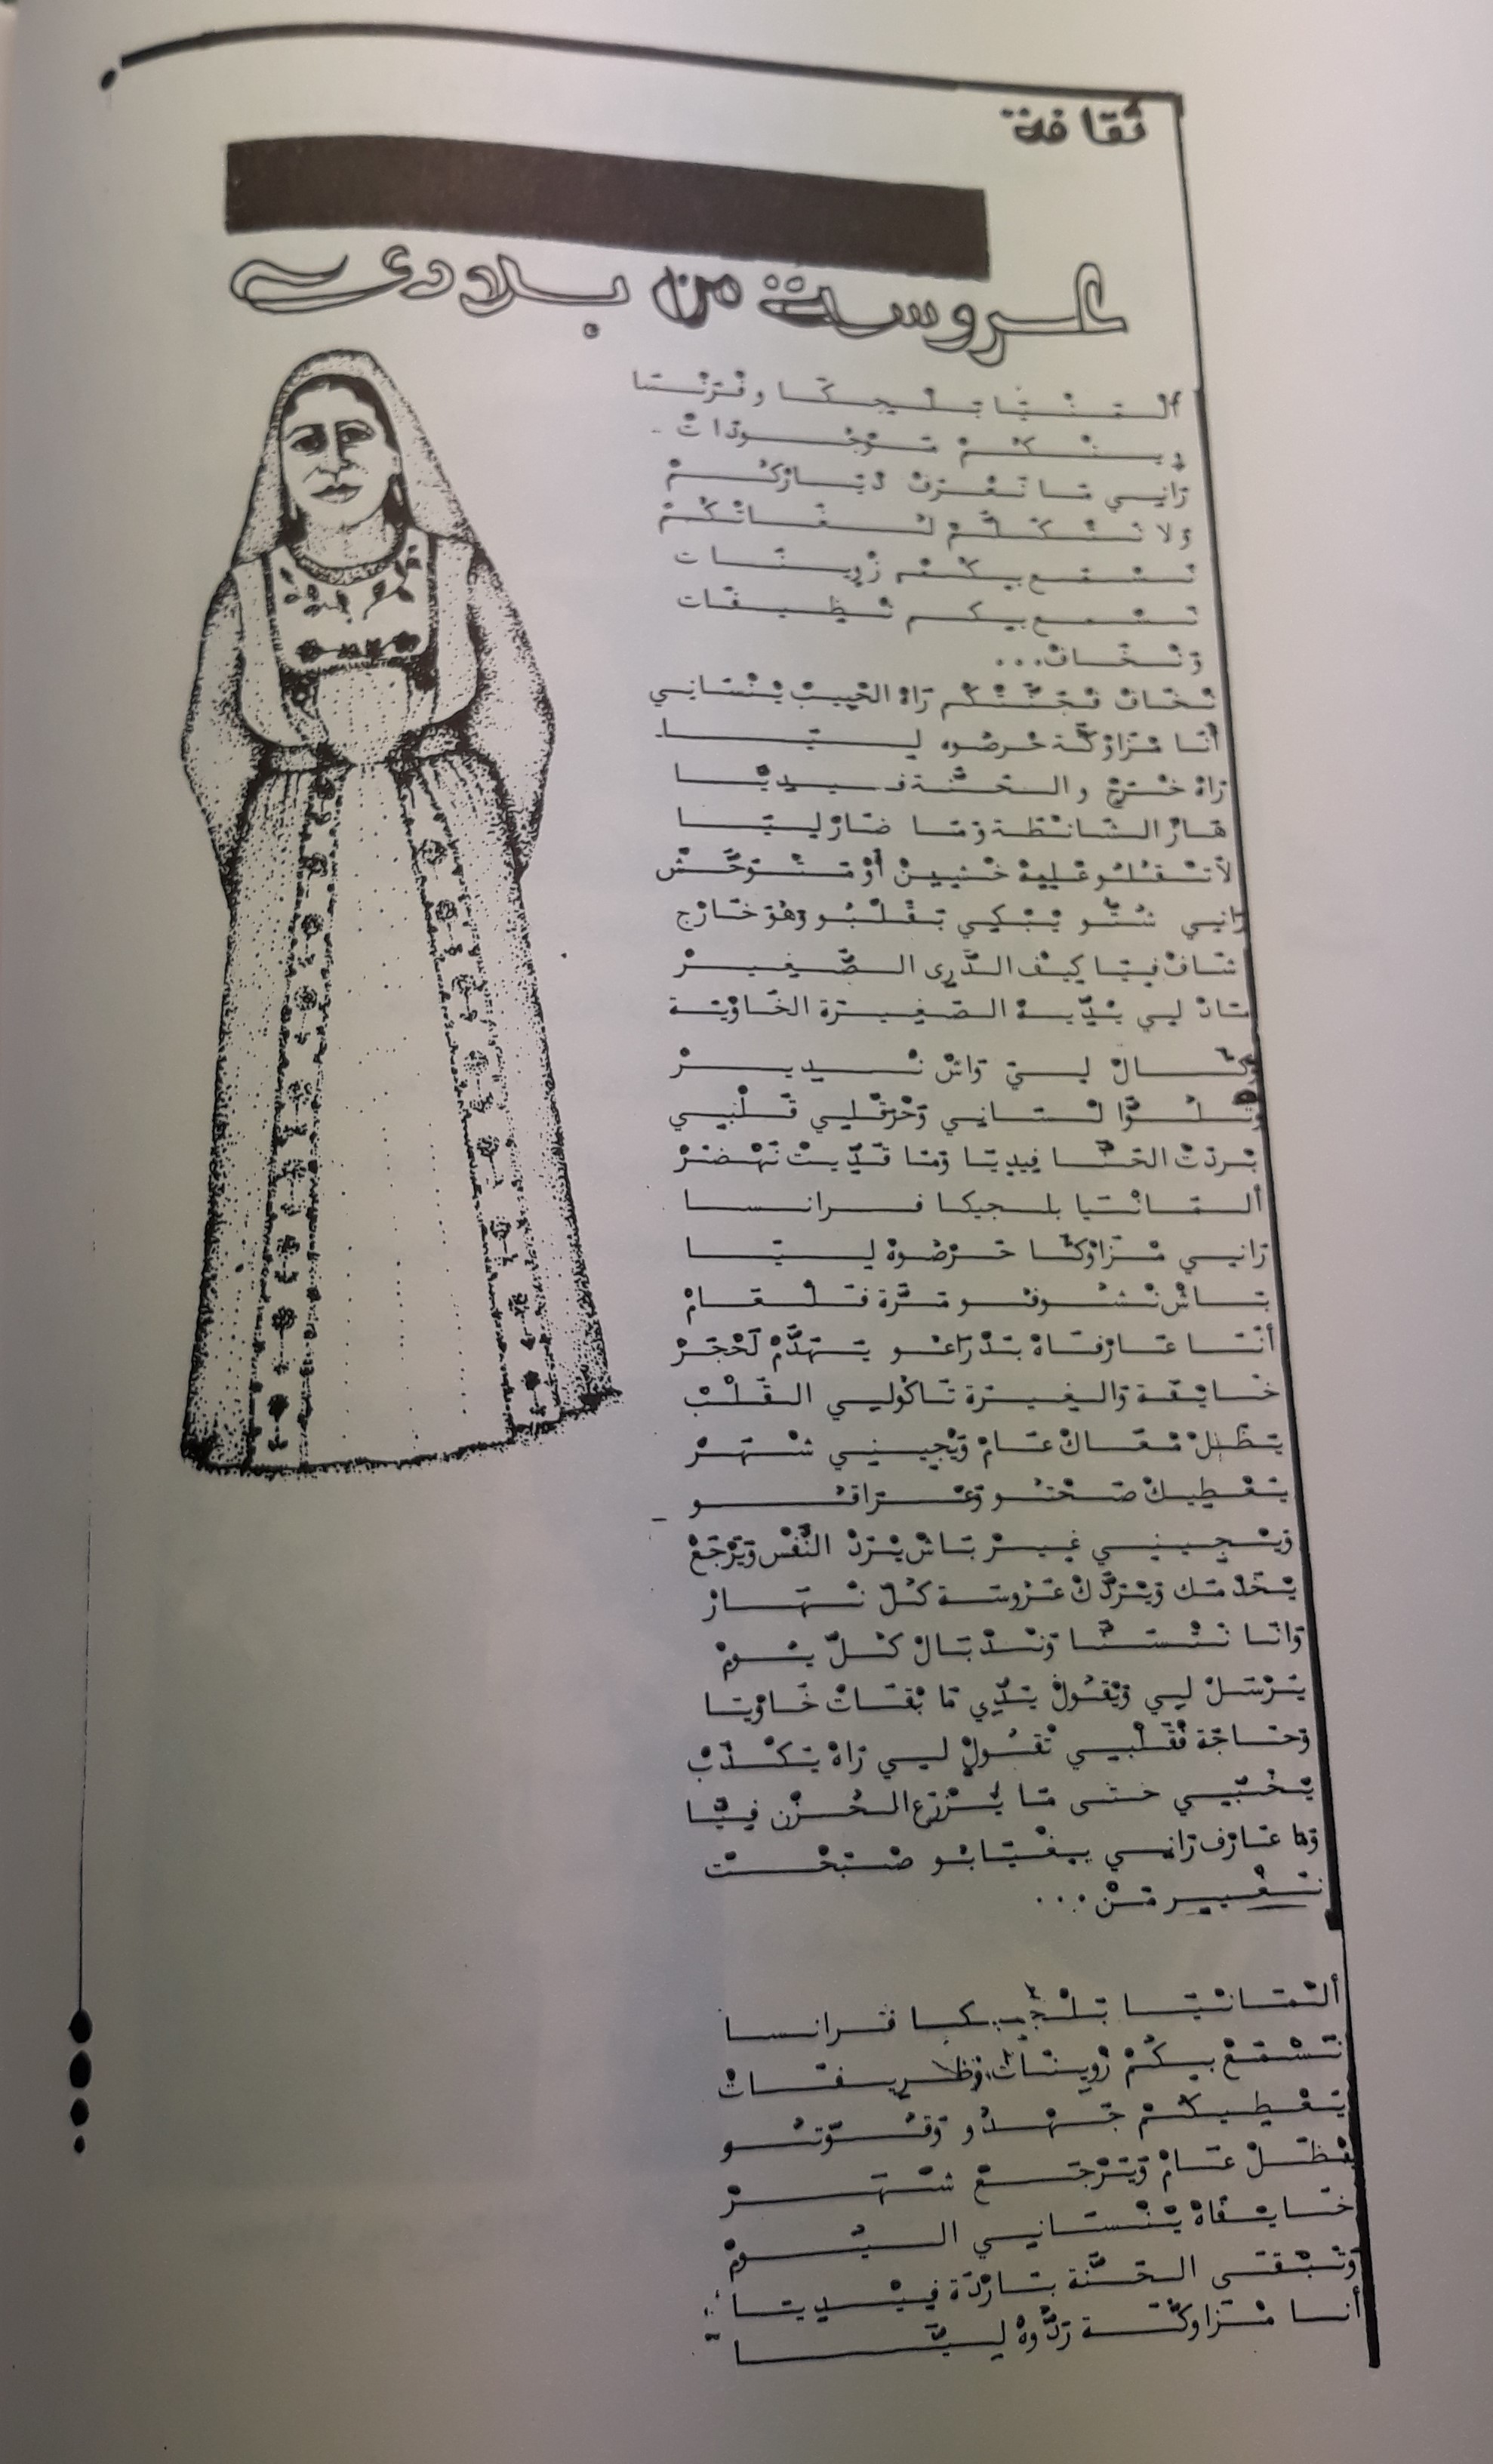 ثقافة
عروسة من بلادي
ألمَنْيَا بَلْجِيكَا وفْرَنْسَا
وِينْكُمْ مَوْجُودَاتْ
رَانِي مَا نَعْرَفْ دْيَارْكُمْ
وَلا نَتْكَلَّمْ لُغَاتْكُمْ
نَسْمَع بِيكُمْ زْوِينَات
نَسْمَع بِيكم نْظِيفَات
وَنْخَافْ...
نْخَافْ فْجَنْبْكُم رَاهْ الحْبِيبْ يَنْسَانِي
أنَا مْزَاوْكَة عَرضُوه لِيَّا
رَاهْ خْرَجْ والحَنَّة فيدِيَّا
هَازْ الشَّانْطَة وَمَا ضَارْ لِيَّا
لاَ تْقُلُو عْلِيهْ حْنِينْ أَوْ مَتْوَحَّشْ
رَانِي شُفْتُو يَبْكِي بْقَلْبُو وَهُوَ خَارْج
شَافْ فِيَّا كِيفْ الدَّرِي الصّْغِيرْ
مَادْ لِي يْدِّيهْ الصْغِيرَة الخَاوْيَة
كَالْ لِي وَاشْ نْدِيرْ
تْلَوَّا لْسَانِي وَحْرَقْلِي قَلْبِي
بَردَتْ الحَنَّا فِيدِيَا وَمَا قَدِّيتْ نَهْضَرْ
ألمَانْيَا بلجيكا فرانسا
رَانِي مْزَاوْكَا عَرْضُوهْ لِيَا
بَاشْ نْشُوفُو مَرَّة فَلْعَامْ
أنَا عَارْفَاهْ بَدْرَاعُو يَتهَدَّمْ لَحْجَرْ
خَايْفَة وَالغِيرَة تَاكُولِي القَلْبْ
يَظَلْ مْعَاكْ عَامْ وَيْجِينِي شْهَرْ
يَعْطِيكْ صَحْتُو وَعْرَاقُو
وَيْجِينِي غِيرْ بَاشْ يْرَدْ النَّفْسْ وَيَرْجَعْ
يْخَدْمَك وَيْرَدَّكْ عَرُوسَة كُلّْ نْهَارْ
وَانَا نَتْسَنَّا وَنَدْبَالْ كُلّْ يُومْ
يَرْسَلْ لِي وَيْقُولْ يَدِّي مَا بْقَاتْ خَاوْيَا
وَحَاجَة فْقَلْبِي تْقُولْ لِي رَاهْ يَكْذَبْ
يْخَبِّي حَتى مَا يَزْرَع الحُزْن فِيَّا
وَمَا عَارَف رَانِي بِغْيَابُو صْبَحْت
نَغْيِير مَنْ...
ألْمَانْيَا بَلْجِيكا فرانسا
نَسْمَعْ بِيكُمْ زْوِينَاتْ وَظْرِيفَاتْ
يَعْطِيكُمْ جَهْدُو وَقُوّتُو
يْظَلْ عَامْ وَيَرْجَعْ شْهَرْ
خَايْفَاهْ يَنْسَانِي اليُومْ
وَتَبْقَى الحَنَّة بَارْدَة فِيْدِيَا
أنا مْزَاوكَة رَدُّوهْ لِيَّا